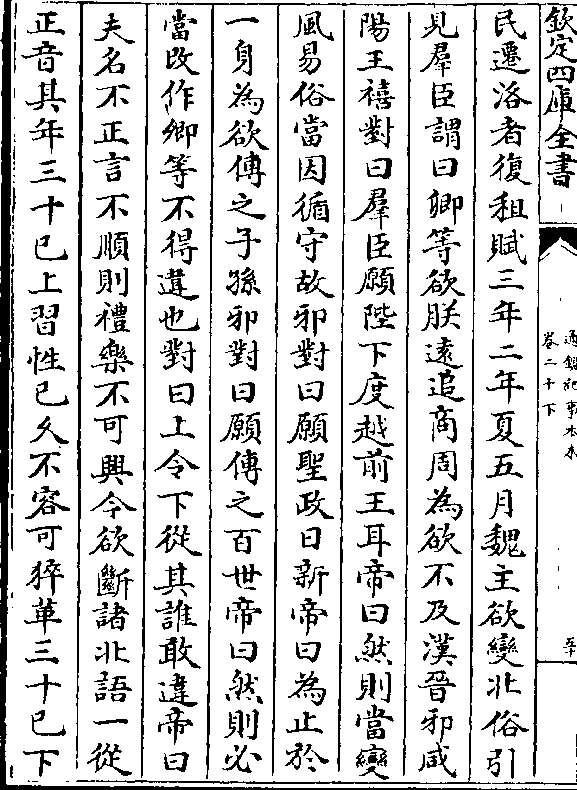 欽定四庫全書
通鑑紀事本末
卷二十下
民遷洛者復租賦三年二年夏五月魏主欲變北俗引
見羣臣謂曰卿等欲朕遠追商周為欲不及漢晉邪咸
陽王禧對曰羣臣願陛下度越前王耳帝曰然則當變
風易俗當因循守故邪對曰願聖政日新帝曰為止於
一身為欲傳之子孫邪對曰願傳之百世帝曰然則必
當改作卿等不得違也對曰上令下從其誰敢違帝曰
夫名不正言不順則禮樂不可興今欲斷諸北語一從
正音其年三十已上習性已久不容可猝革三十已下